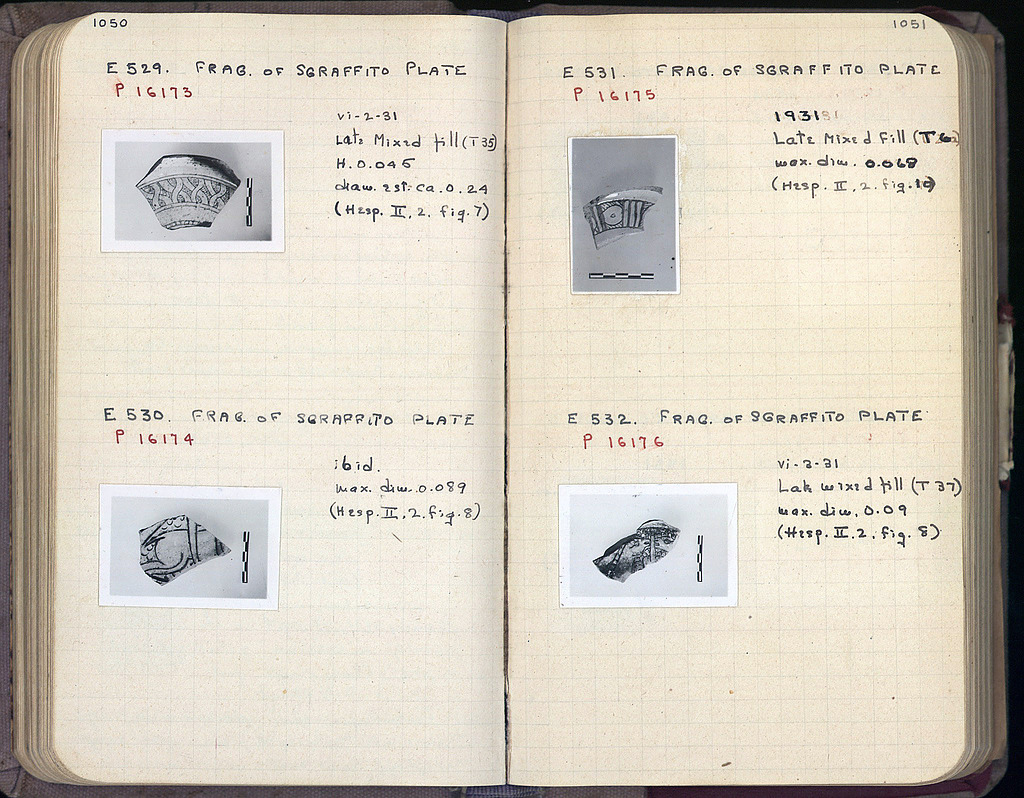 1050
E 529. FRAG. OF SGRAFFITO PLATE
P 16173
vi-2-31
Late Mixed fill (T 35)
H. 0.045
diam. est. ca. 0.24
(Hesp. II, 2. fig. 7)
E 530. FRAG. OF SGRAFFITO PLATE
P 16174
ibid.
max. dim. 0.089
(Hesp. II, 2. fig. 8)
1051
E 531. FRAG. OF SGRAFFITO PLATE
P 16175
1931
Late Mixed Fill
max. dim. 0.068
(Hesp. II, 2. fig. 10)
E 532. FRAG. OF SGRAFFITO PLATE
P 16176
vi-3-31
Late mixed fill (T 37)
max. dim. 0.09
(Hesp. II, 2. fig. 8)